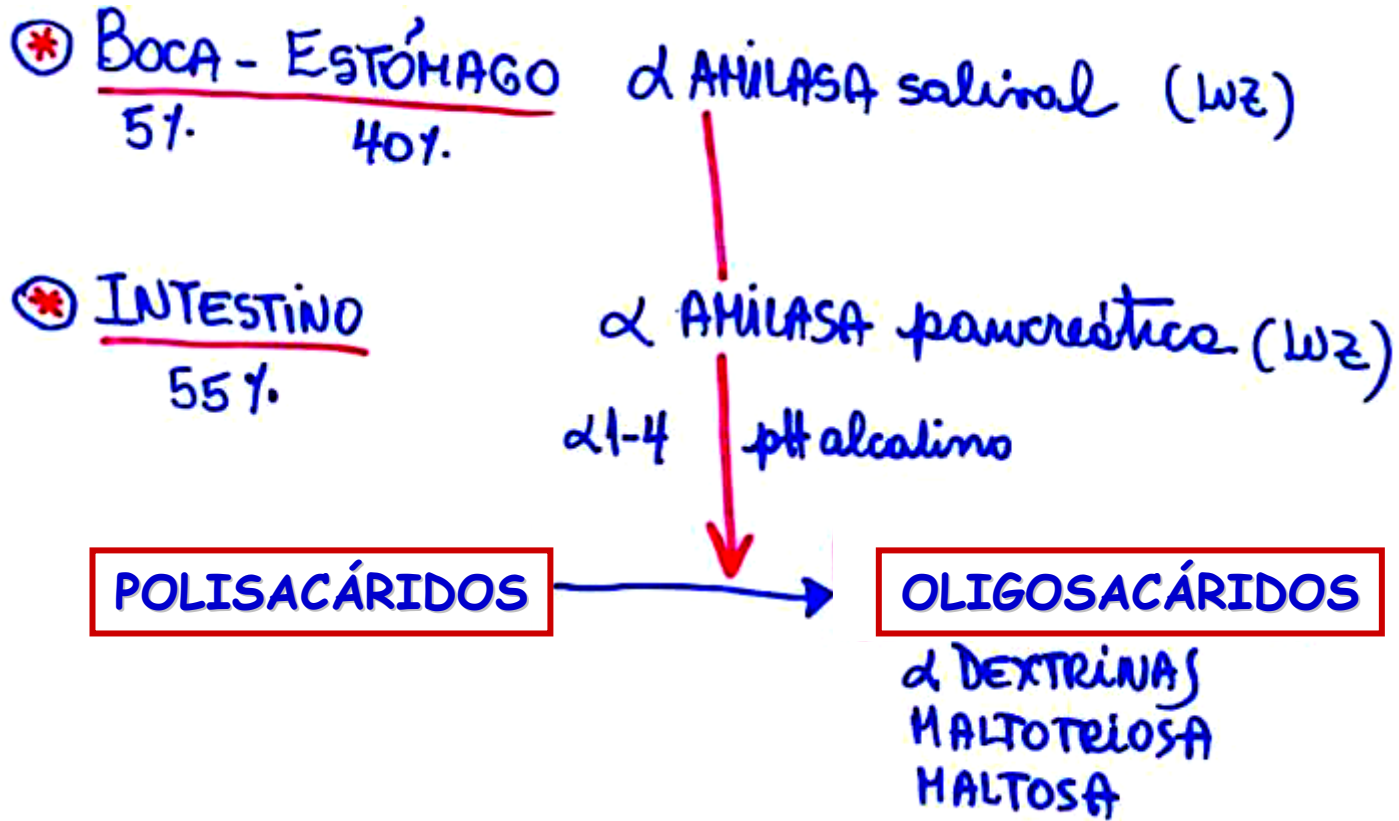 * BOCA - ESTÓMAGO α AMILASA salival (LUZ)
5% 40%
* INTESTINO α AMILASA pancreática (LUZ)
55%
α1-4 pH alcalino
POLISACÁRIDOS OLIGOSACÁRIDOS
α DEXTRINAS
MALTOTRIOSA
MALTOSA